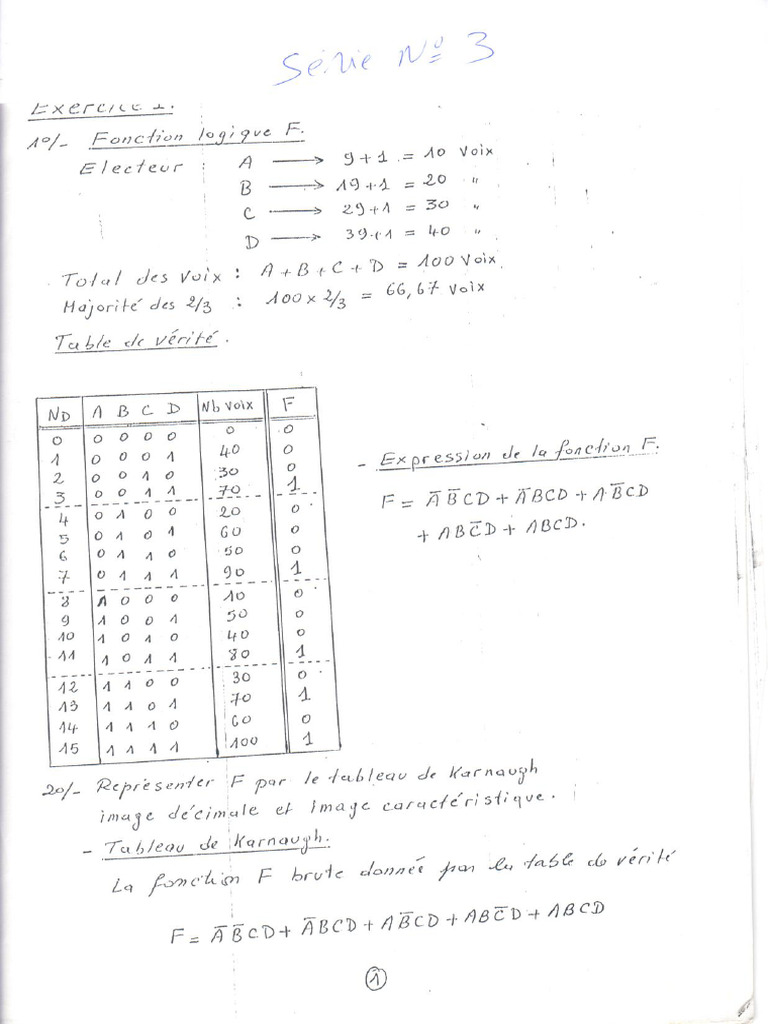 Série N° 3
Exercice 1.
1°/- Fonction logique F.
Electeur : A → 9+1 = 10 Voix
B → 19+1 = 20 "
C → 29+1 = 30 "
D → 39+1 = 40 "
Total des Voix : A + B + C + D = 100 Voix.
Majorité des 2/3 : 100 x 2/3 = 66,67 Voix
Table de vérité.
ND A B C D Nb voix F
0 0 0 0 0 0 0
1 0 0 0 1 40 0
2 0 0 1 0 30 0
3 0 0 1 1 70 1
4 0 1 0 0 20 0
5 0 1 0 1 60 0
6 0 1 1 0 50 0
7 0 1 1 1 90 1
8 1 0 0 0 10 0
9 1 0 0 1 50 0
10 1 0 1 0 40 0
11 1 0 1 1 80 1
12 1 1 0 0 30 0
13 1 1 0 1 70 1
14 1 1 1 0 60 0
15 1 1 1 1 100 1
- Expression de la fonction F.
F = A̅ B̅ C D + A̅ B C D + A B̅ C D
+ A B C̅ D + A B C D.
2°/- Représenter F par le tableau de Karnaugh
image décimale et image caractéristique.
- Tableau de Karnaugh.
La fonction F brute donnée par la table de vérité
F = A̅ B̅ C D + A̅ B C D + A B̅ C D + A B C̅ D + A B C D
1